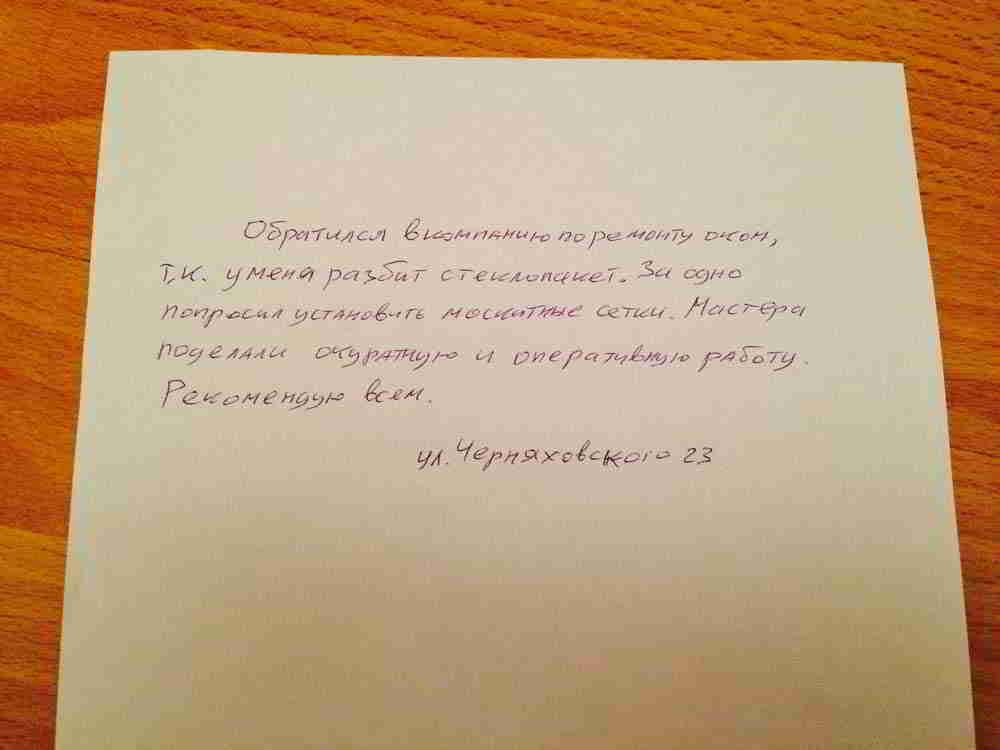 Обратился в компанию по ремонту окон,
т.к. у меня разбит стеклопакет. За одно
попросил установить москитные сетки. Мастера
поделали окуратную и оперативную работу.
Рекомендую всем.
ул. Черняховского 23